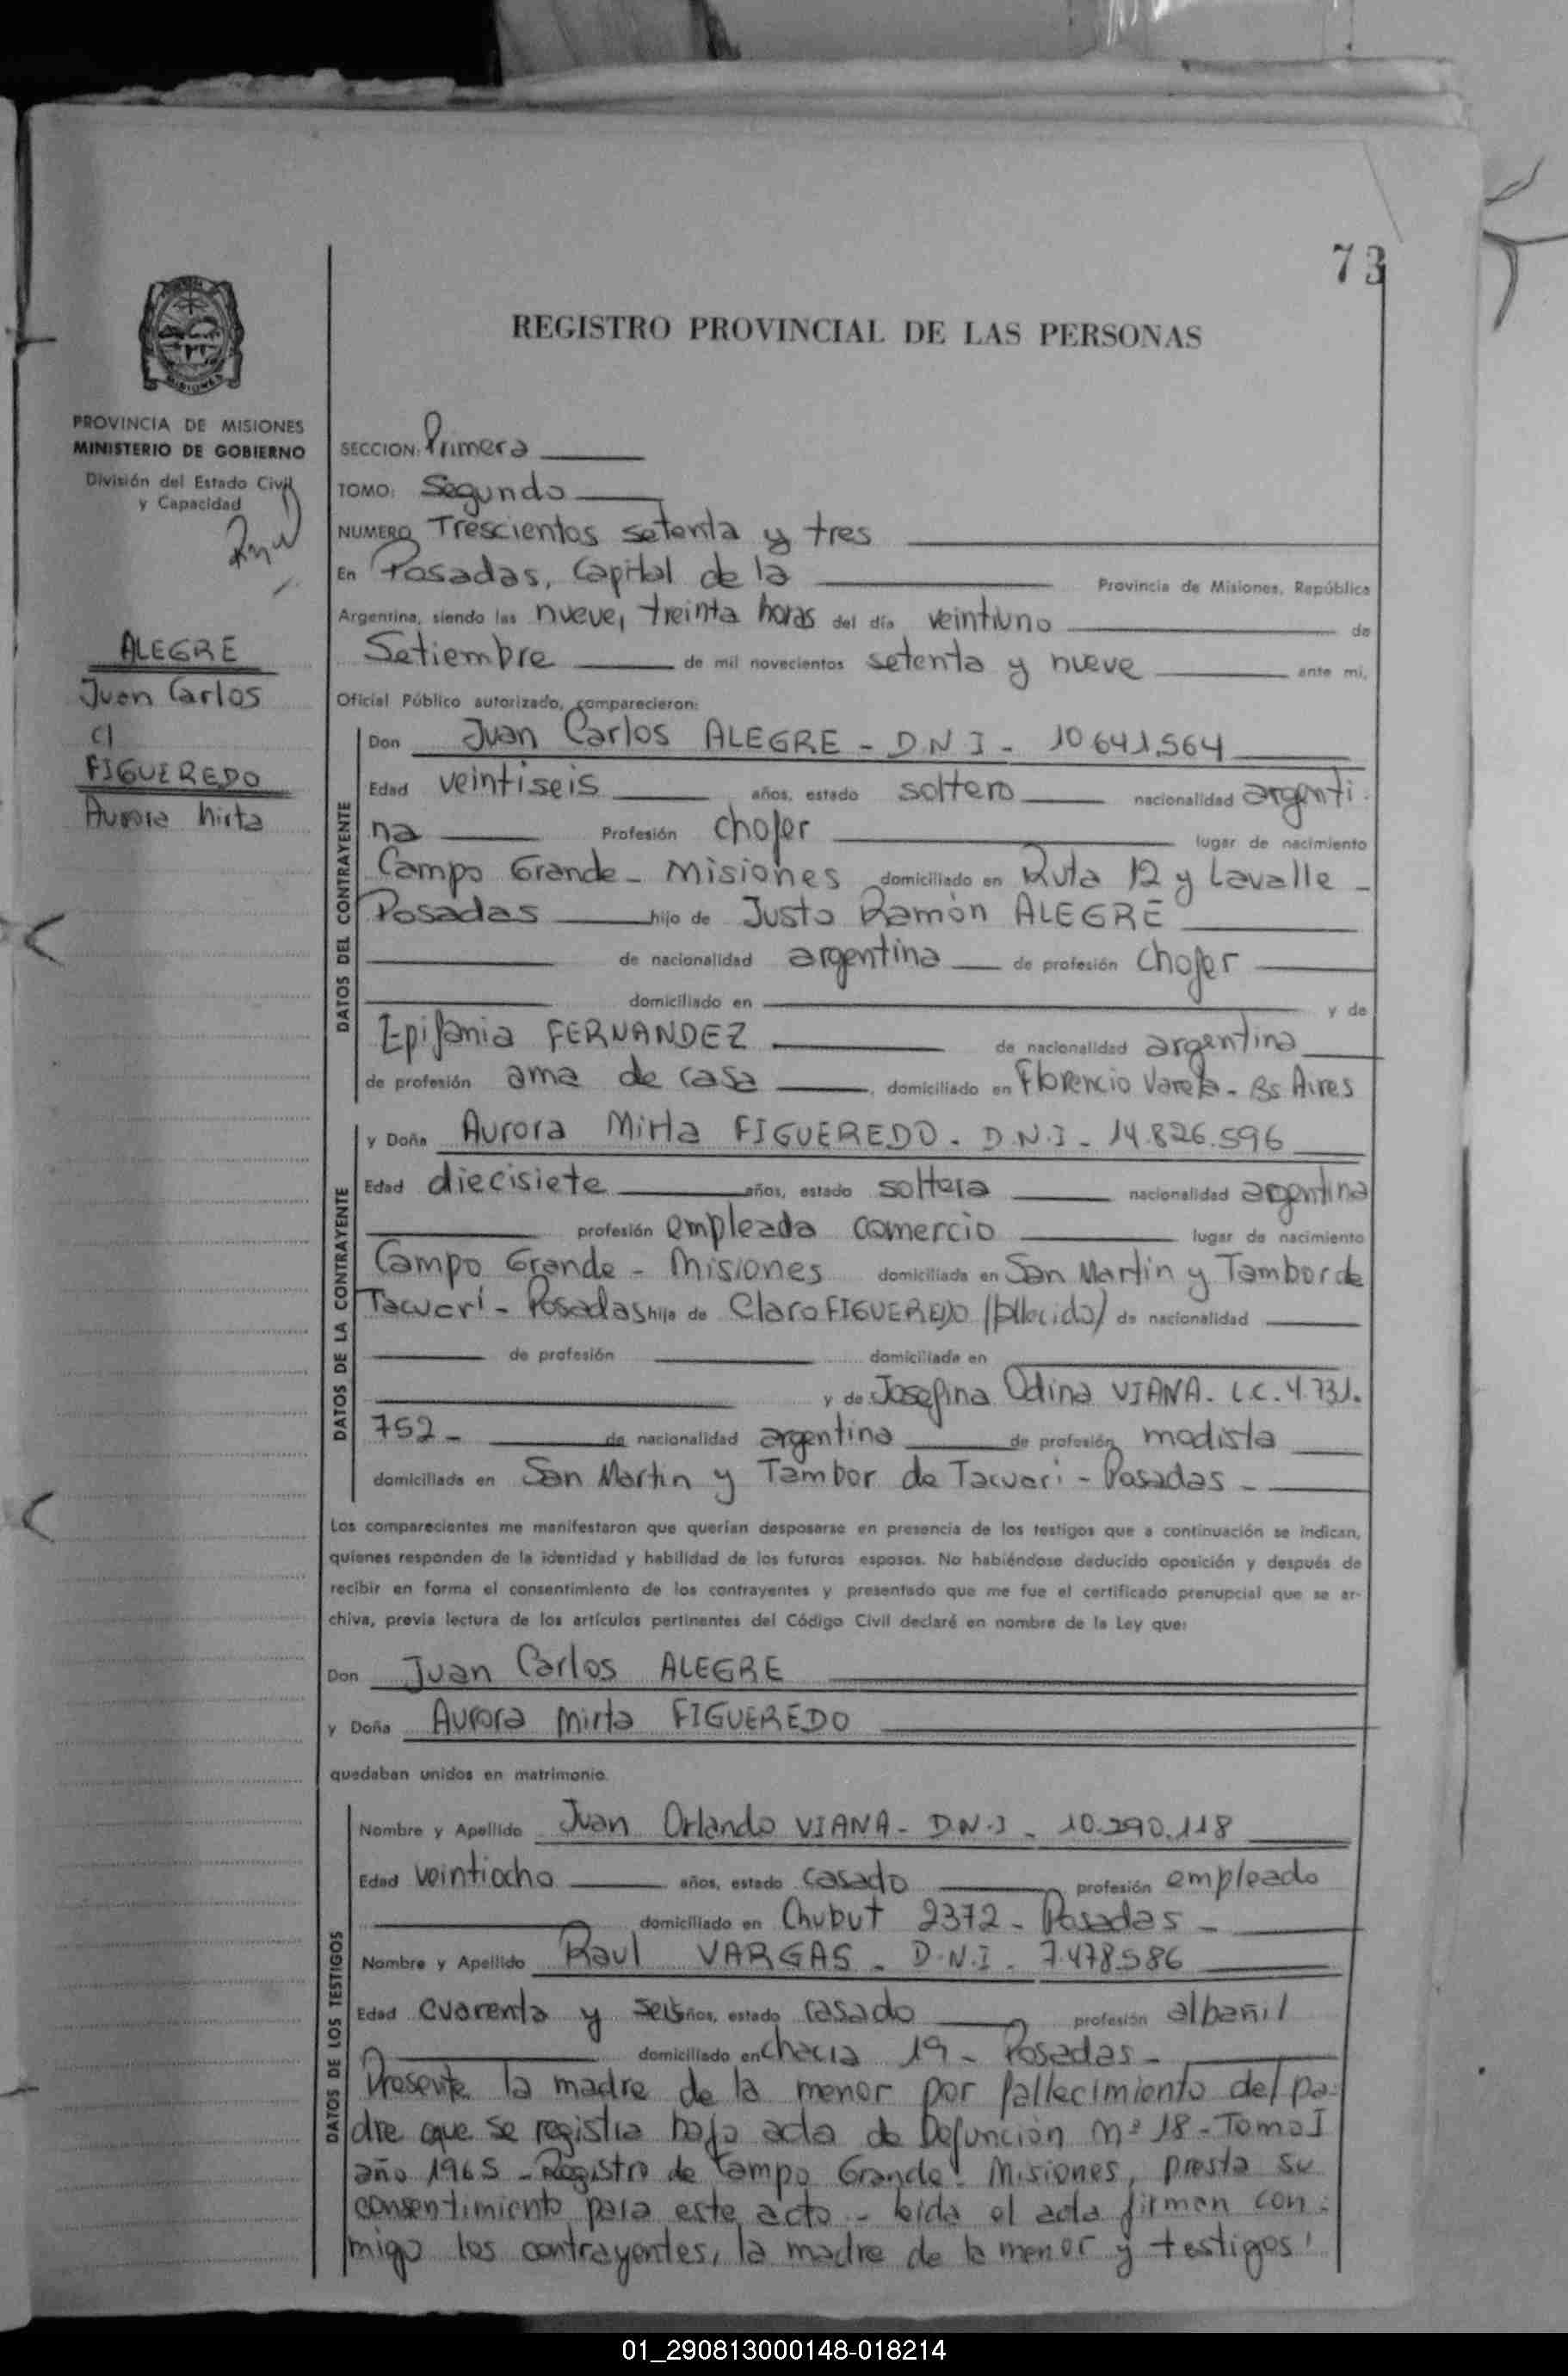 73
REGISTRO PROVINCIAL DE LAS PERSONAS
MISIONES
PROVINCIA DE MISIONES
MINISTERIO DE GOBIERNO
División del Estado Civil
y Capacidad
ALEGRE
Juan Carlos
c/
FIGUEREDO
Aurora Mirta
SECCION: Primera
TOMO: Segundo
NUMERO Trescientos setenta y tres
En Posadas, Capital de la Provincia de Misiones, República
Argentina, siendo las nueve, treinta horas del día veintiuno de
Setiembre de mil novecientos setenta y nueve ante mi,
Oficial Público autorizado, comparecieron:
DATOS DEL CONTRAYENTE
Don Juan Carlos ALEGRE - D.N.I - 10641.564
Edad veintiseis años, estado soltero nacionalidad argenti
na Profesión chofer lugar de nacimiento
Campo Grande - Misiones domiciliado en Ruta 12 y Lavalle -
Posadas hijo de Justo Ramón ALEGRE
de nacionalidad argentina de profesión chofer
domiciliado en y de
Epifania FERNANDEZ de nacionalidad argentina
de profesión ama de casa, domiciliado en Florencio Varela - Bs Aires
DATOS DE LA CONTRAYENTE
y Doña Aurora Mirta FIGUEREDO - D.N.I - 14.826.596
Edad diecisiete años, estado soltera nacionalidad argentina
profesión empleada comercio lugar de nacimiento
Campo Grande - Misiones domiciliada en San Martin y Tambor de
Tacuarí - Posadas hija de Claro FIGUEREDO (fallecido) de nacionalidad
de profesión domiciliada en
y de Josefina Odina VIANA - L.C. 4.731.
752 - de nacionalidad argentina de profesión modista
domiciliada en San Martin y Tambor de Tacuari - Posadas -
Los comparecientes me manifestaron que querían desposarse en presencia de los testigos que a continuación se indican,
quienes responden de la identidad y habilidad de los futuros esposos. No habiéndose deducido oposición y después de
recibir en forma el consentimiento de los contrayentes y presentado que me fue el certificado prenupcial que se ar-
chiva, previa lectura de los artículos pertinentes del Código Civil declaré en nombre de la Ley que:
Don Juan Carlos ALEGRE
y Doña Aurora Mirta FIGUEREDO
quedaban unidos en matrimonio.
DATOS DE LOS TESTIGOS
Nombre y Apellido Juan Orlando VIANA - D.N.I - 10.290.118
Edad veintiocho años, estado casado profesión empleado
domiciliado en Chubut 2372 - Posadas -
Nombre y Apellido Raul VARGAS - D.N.I - 7.478.586
Edad cuarenta y seis años, estado casado profesión albañil
domiciliado en chacra 19 - Posadas -
Presente la madre de la menor por fallecimiento del pa-
dre que se registra bajo acta de Defunción Nº 18 - Tomo I
año 1965 - Registro de Campo Grande - Misiones, presta su
consentimiento para este acto - leída el acta firman con-
migo los contrayentes, la madre de la menor y testigos!
01_290813000148-018214